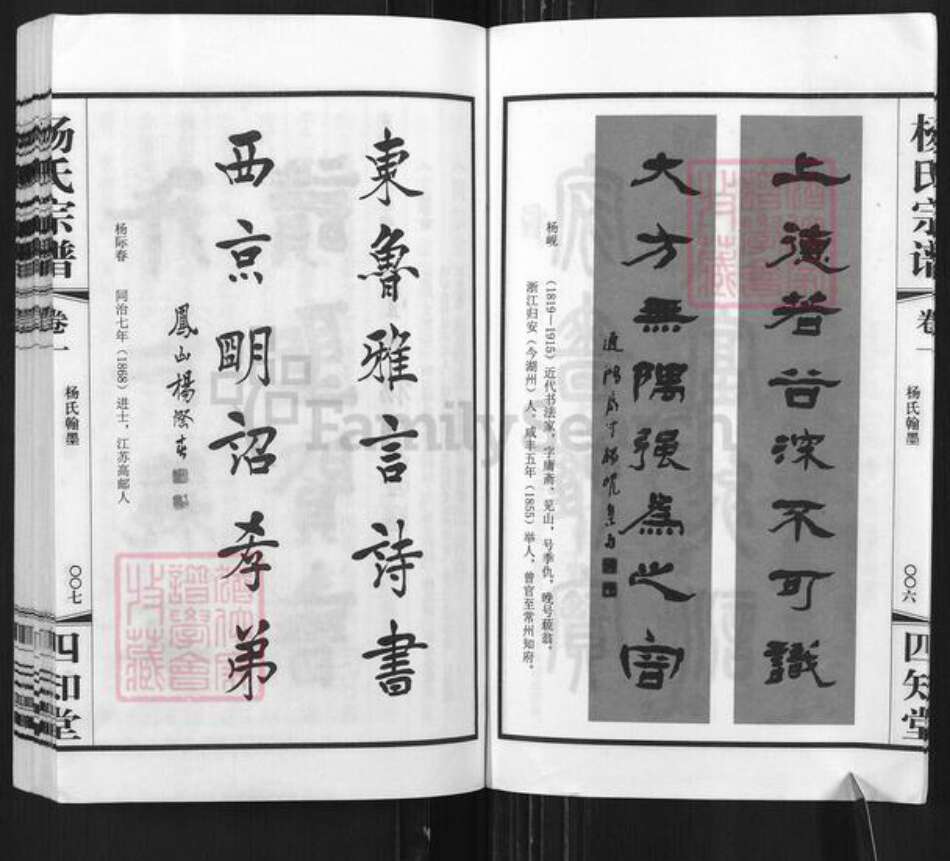 杨氏宗谱
卷一
杨氏翰墨
〇〇六
四知堂
上德若谷深不可識
大方無隅强爲之容
杨岘
(1819—1915)近代书法家，字庸斋、见山，号季仇，晚号藐翁，
浙江归安（今湖州）人，咸丰五年（1855）举人，曾官至常州知府。
東魯雅言詩書
西京明詔孝弟
鳳山楊際春
杨际春　同治七年（1868）进士，江苏高邮人
杨氏宗谱
卷一
杨氏翰墨
〇〇七
四知堂
FamilySearch